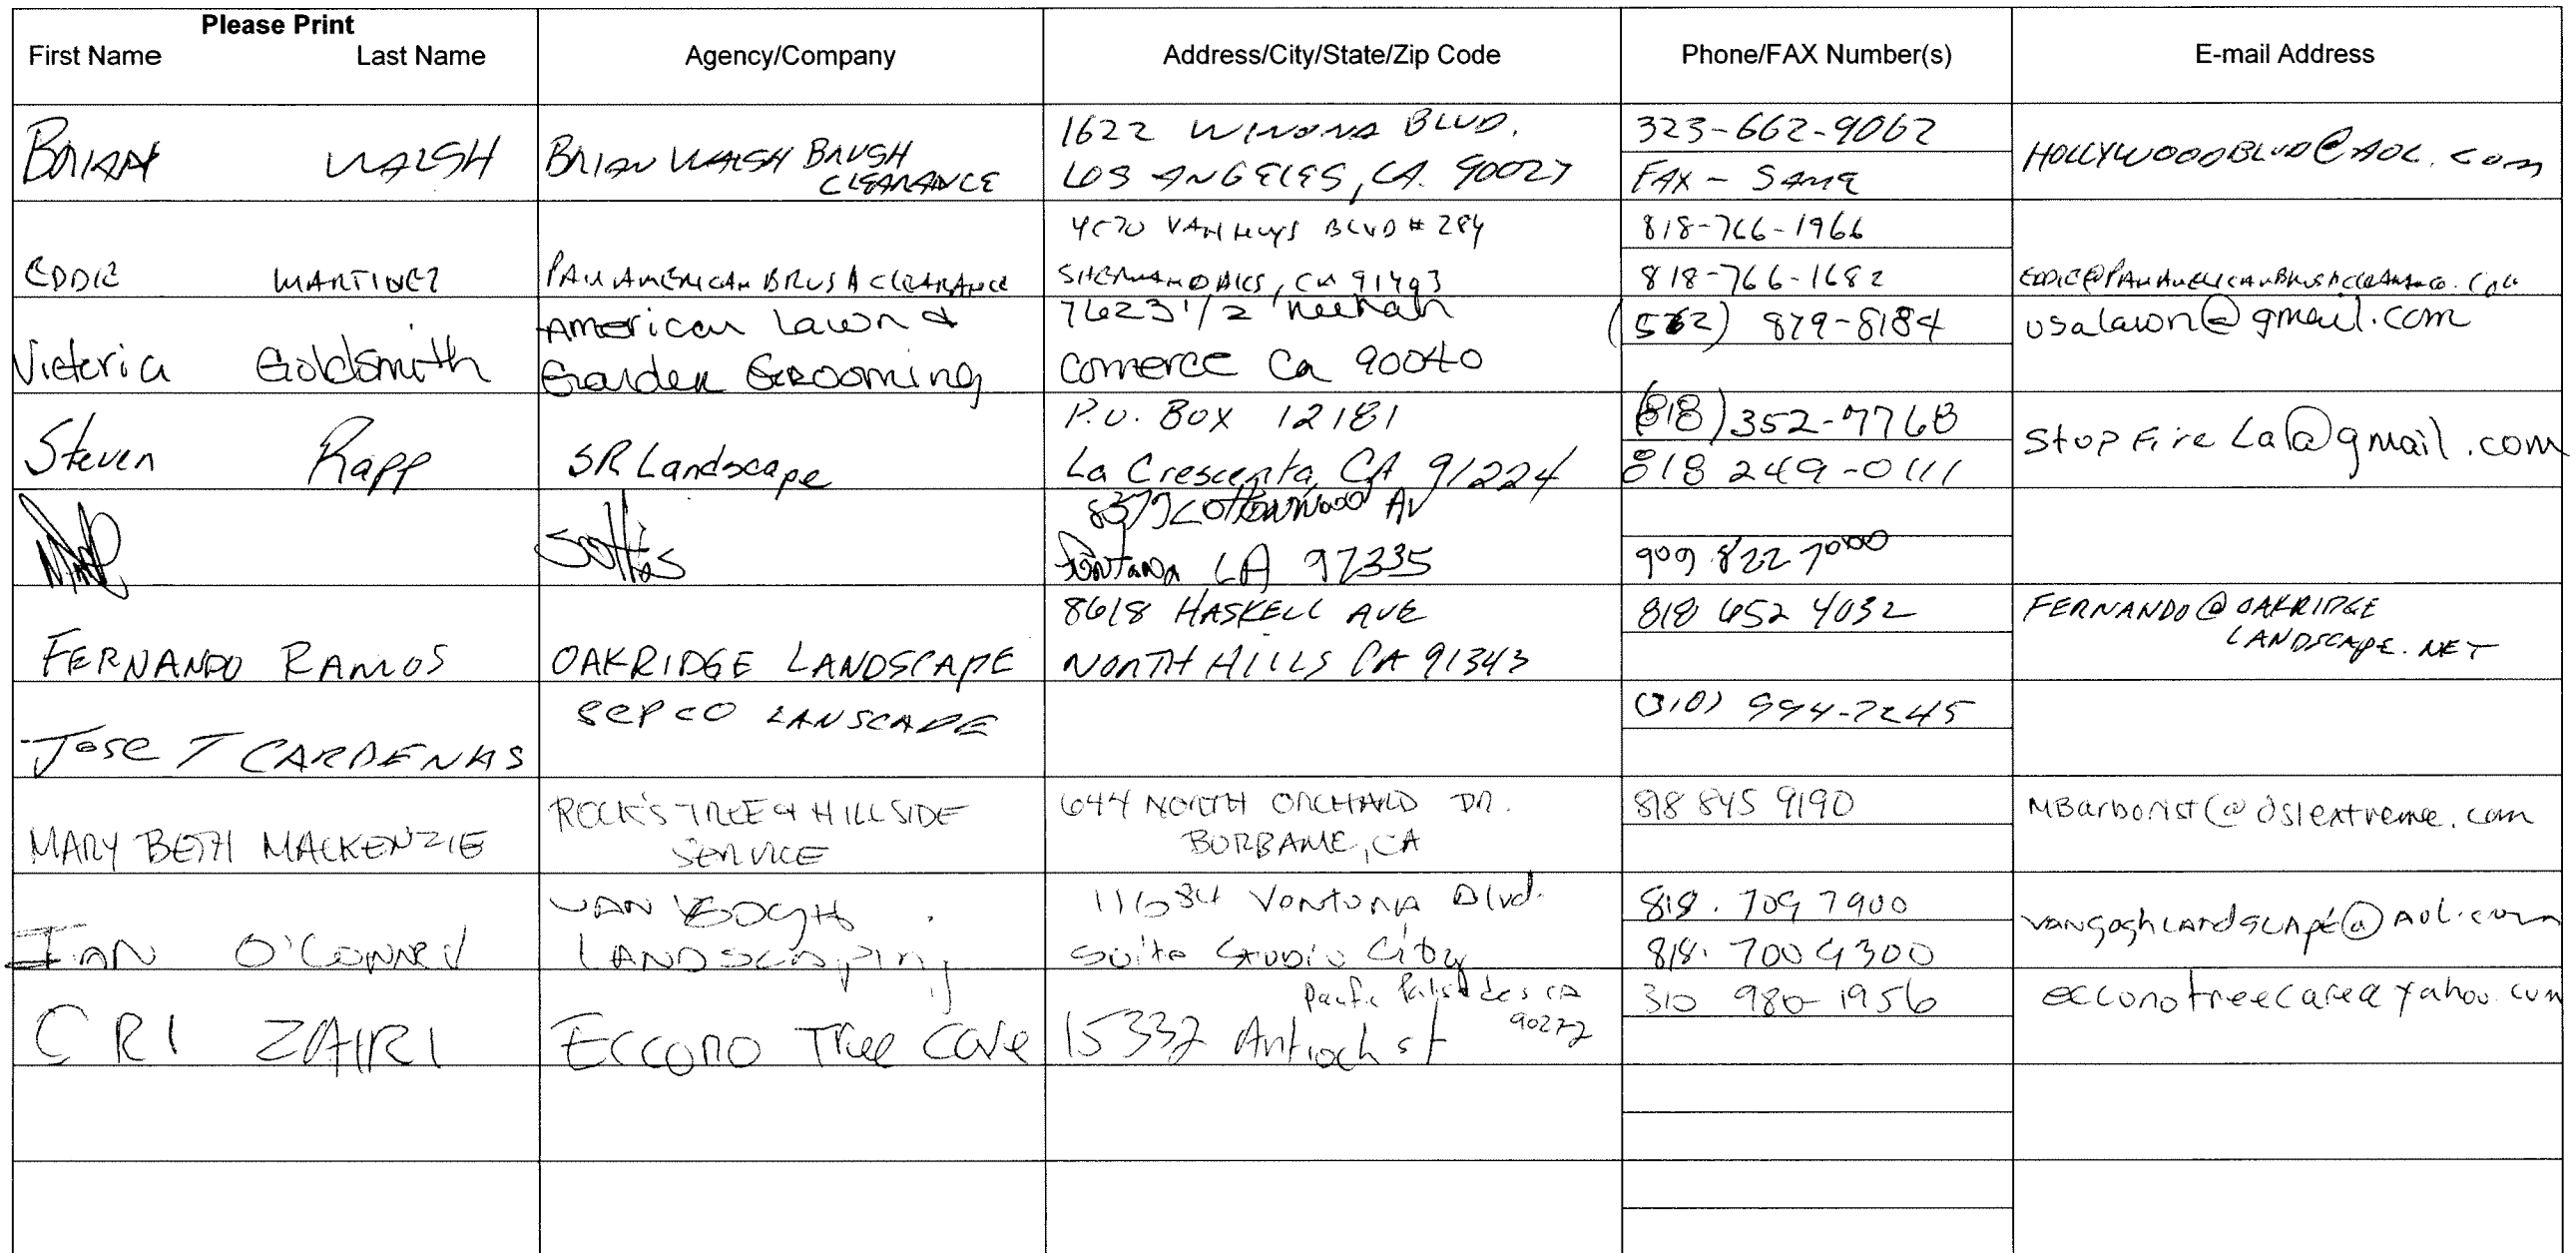 Please Print
First Name Last Name Agency/Company Address/City/State/Zip Code Phone/FAX Number(s) E-mail Address
BRIAN WALSH BRIAN WALSH BRUSH
CLEARANCE
1622 WINONA BLVD.
LOS ANGELES, CA. 90027
323-662-9062
FAX - SAME
HOLLYWOODBLVD@AOL.COM
EDDIE MARTINEZ PAN AMERICAN BRUSH CLEARANCE
4570 VAN NUYS BLVD # 284
SHERMAN OAKS, CA 91403
818-766-1966
818-766-1682
EDDIE@PANAMERICANBRUSHCLEARANCE.COM
Victoria Goldsmith
American Lawn &
Garden Grooming
7623 1/2
Comerce Ca 90040
(562) 879-8184
usalawn@gmail.com
Steven Rapp SR Landscape
P.O. Box 12181
La Crescenta, CA 91224
(818) 352-7768
818 249-0111
StopFireLa@gmail.com
8379 Cottonwood Av
Fontana CA 92335
909 822 7000
FERNANDO RAMOS OAKRIDGE LANDSCAPE
8618 HASKELL AVE
NORTH HILLS CA 91343
818 652 4032
FERNANDO@OAKRIDGE
LANDSCAPE.NET
Jose T CARDENAS
SEPCO LANSCAPE
(310) 994-7245
MARY BETH MACKENZIE
ROCK'S TREE & HILLSIDE
SERVICE
644 NORTH ORCHARD DR.
BURBANK, CA
818 845 9190
MBarborist@dslextreme.com
IAN O'CONNELL
VAN GOGH
LANDSCAPING
11684 Ventura Blvd.
Suite Studio City
818.709 7900
818.700 9300
vangoghlandscape@aol.com
CRI ZAIRI Eccono Tree Care
Pacific Palisades CA
90272
15332 Antioch st
310 980-1956
ecconotreecare@yahoo.com